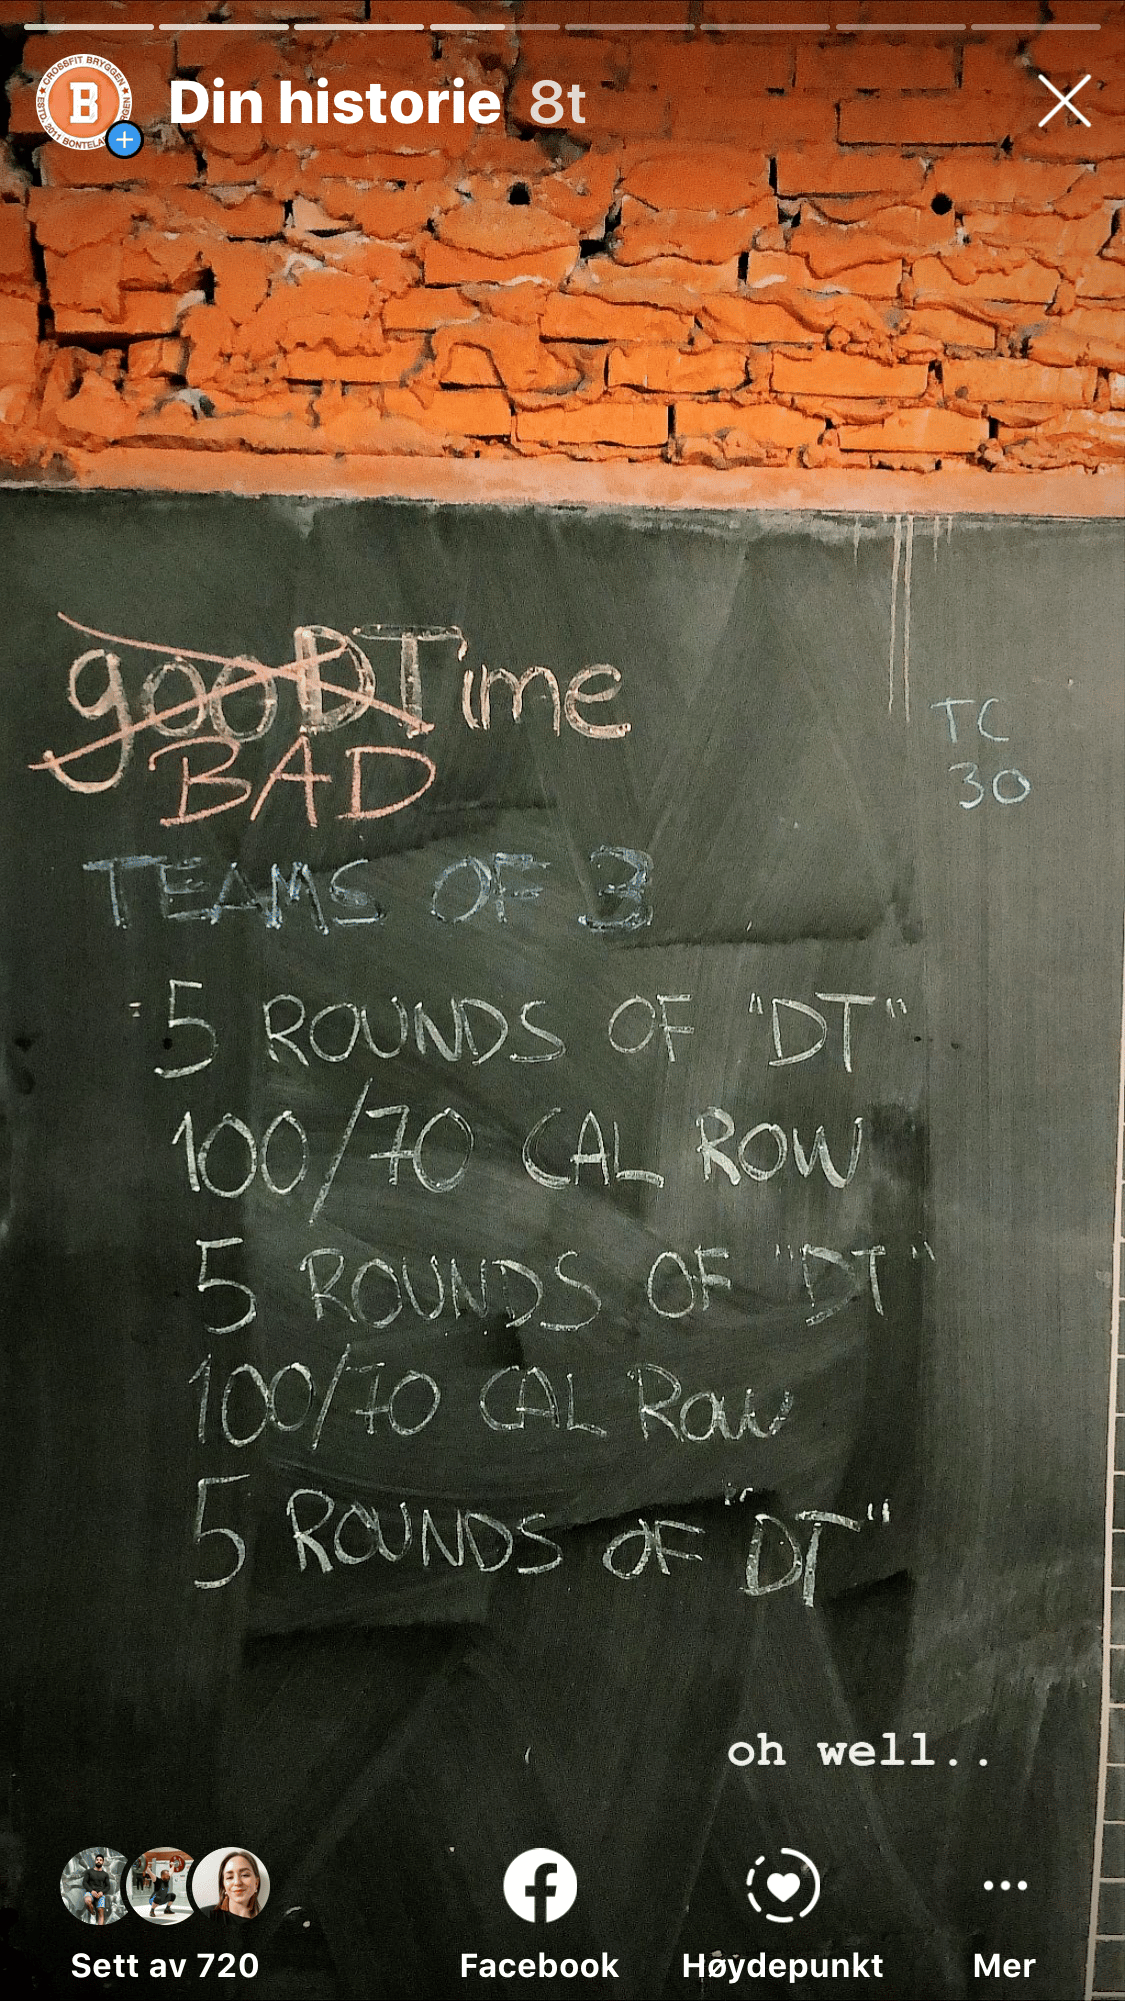 CROSSFIT BRYGGEN
ESTD. 2011 BONTELA
B
Din historie 8t
gooDTime
BAD
TC
30
TEAMS OF 3
5 ROUNDS OF "DT"
100/70 CAL ROW
5 ROUNDS OF "DT"
100/70 CAL ROW
5 ROUNDS OF "DT"
oh well..
Sett av 720
Facebook
Høydepunkt
Mer